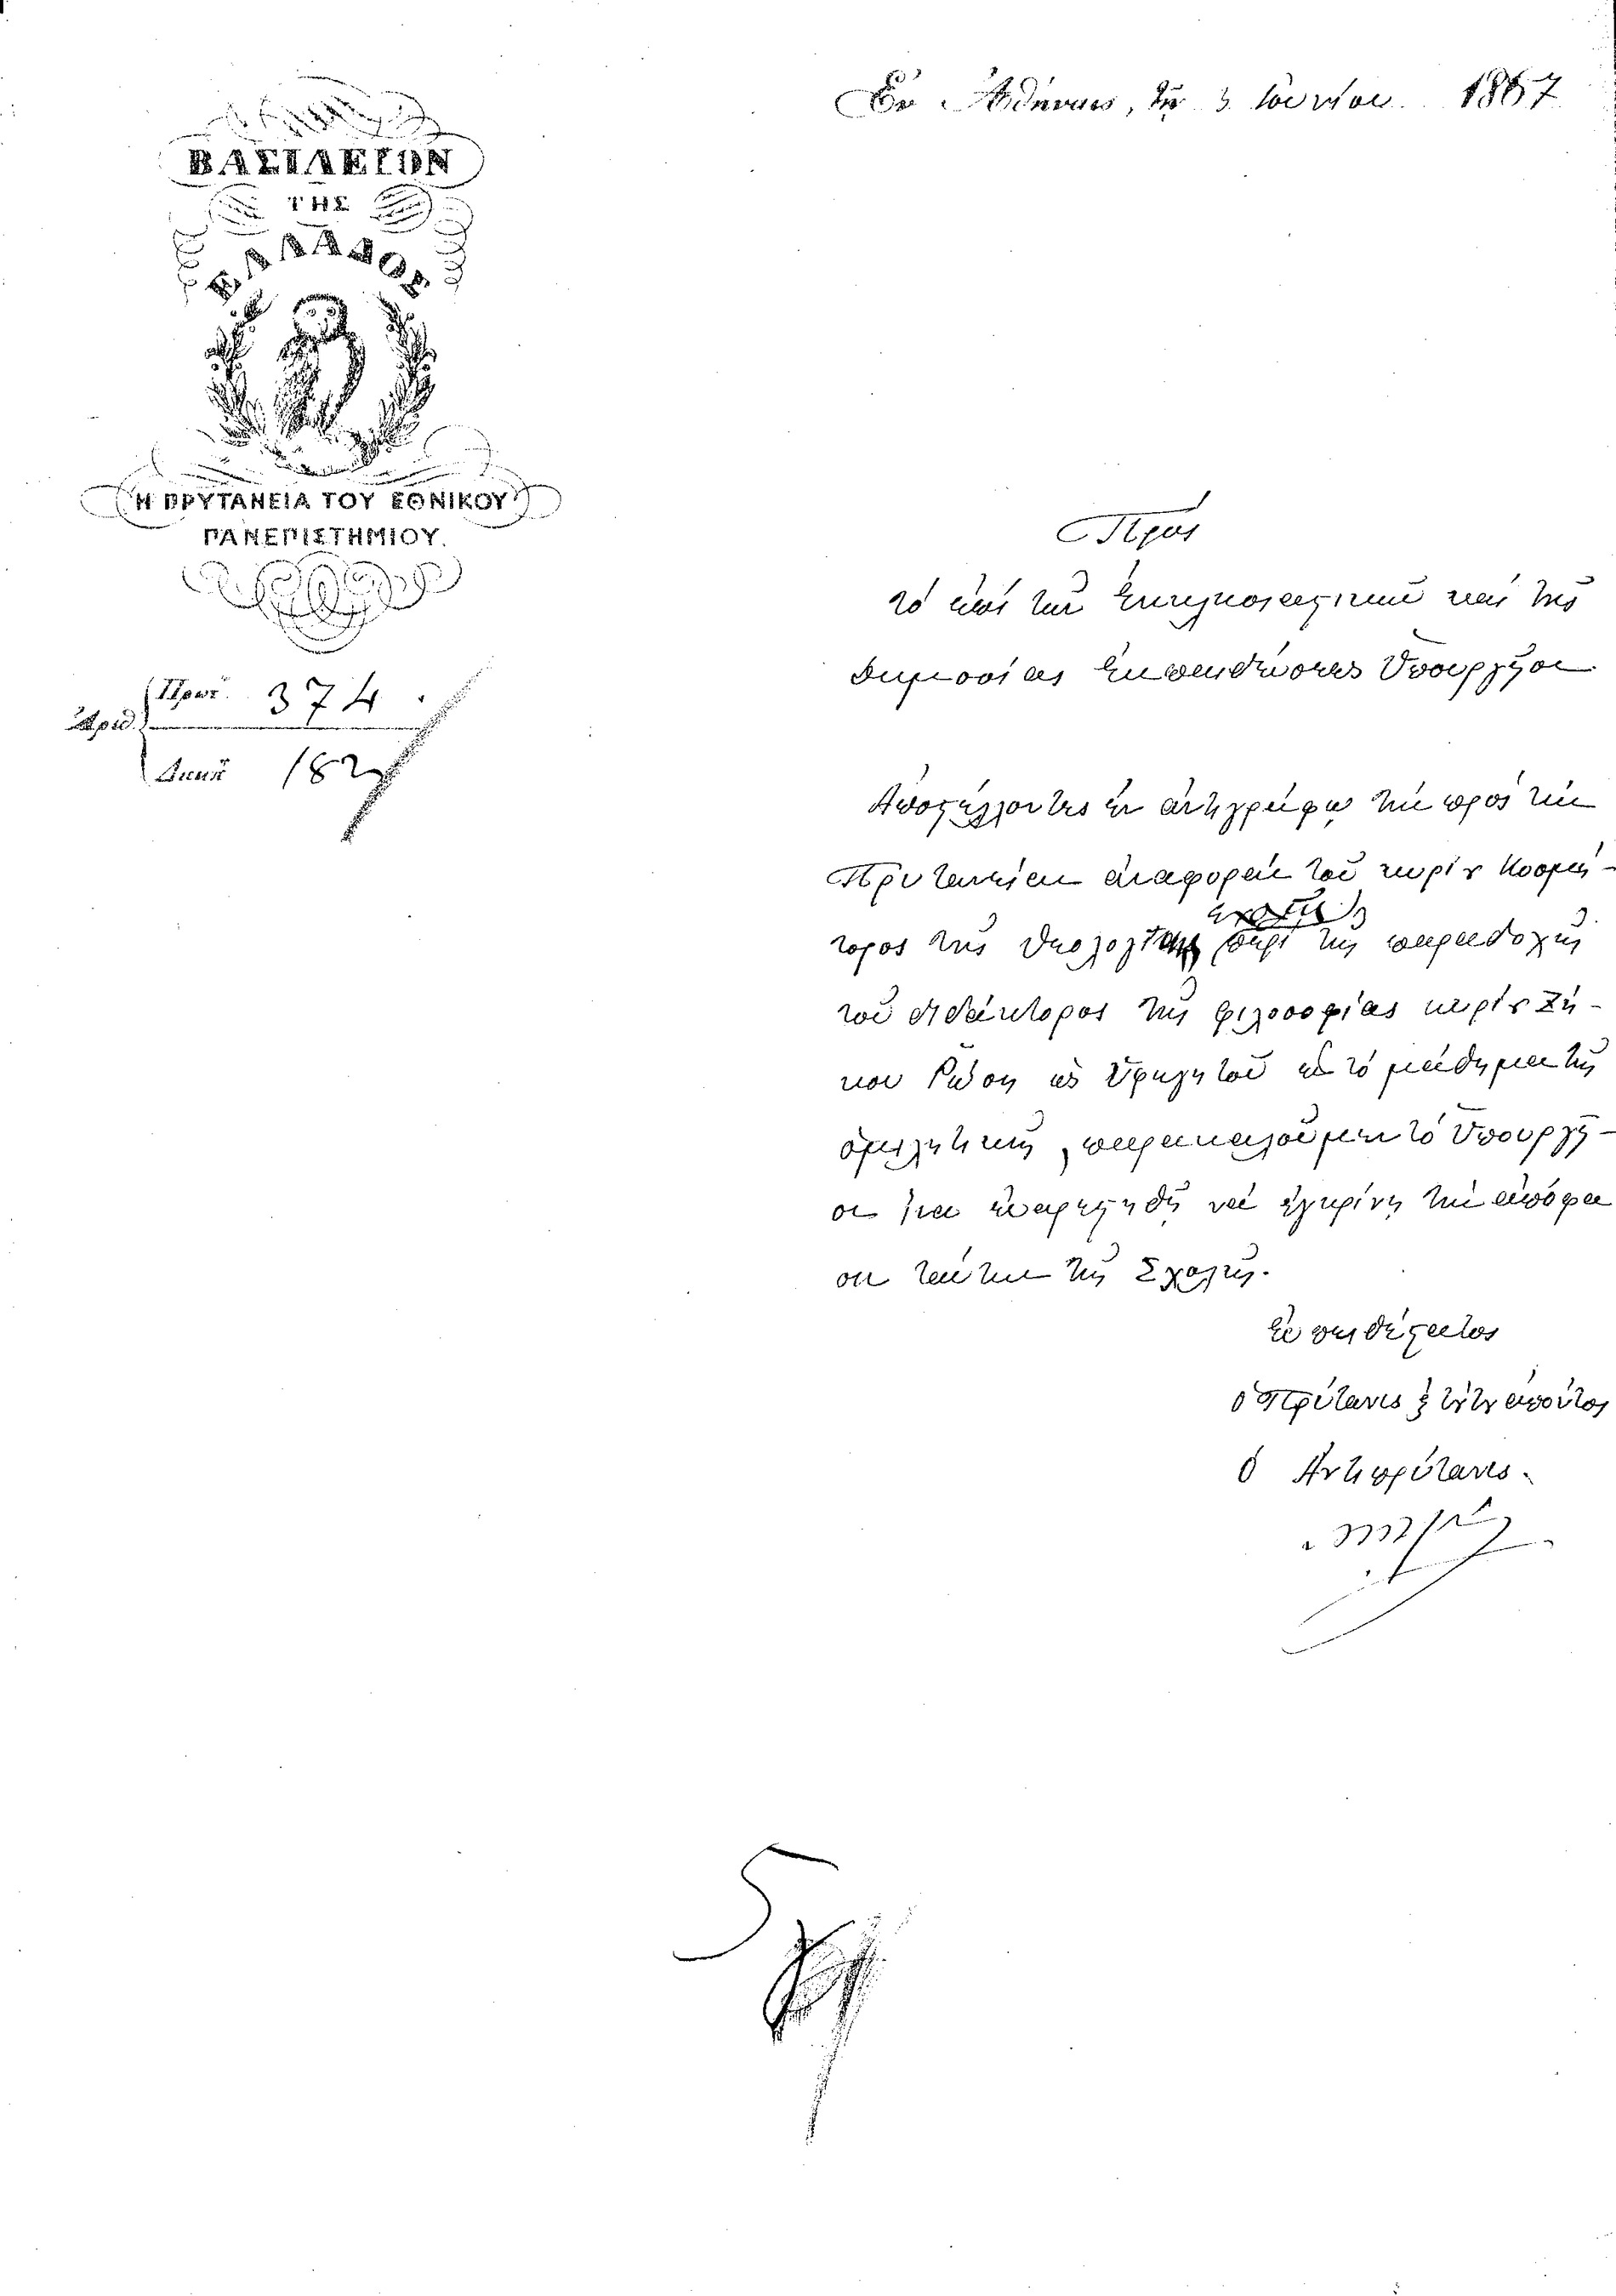 Ἐν Ἀθήναις, τῇ 3 Ἰουνίου 1867
ΒΑΣΙΛΕΙΟΝ
ΤΗΣ
ΕΛΛΑΔΟΣ
Η ΠΡΥΤΑΝΕΙΑ ΤΟΥ ΕΘΝΙΚΟΥ
ΠΑΝΕΠΙΣΤΗΜΙΟΥ.
Ἀριθ.
Πρωτ. 374
Διεκπ. 182
Πρὸς
τὸ ἐπὶ τῶν Ἐκκλησιαστικῶν καὶ τῆς
Δημοσίας Ἐκπαιδεύσεως Ὑπουργεῖον
Ἀποστέλλοντες ἐν ἀντιγράφῳ τὴν πρὸς τὴν
Πρυτανείαν ἀναφορὰν τοῦ κυρίου Κοσμή-
τορος τῆς Θεολογικῆς σχολῆς περὶ τῆς παραδοχῆς
τοῦ διδάκτορος τῆς φιλοσοφίας κυρίου Ζή-
κου Ῥώση ὡς Ὑφηγητοῦ εἰς τὸ μάθημα τῆς
ὁμιλητικῆς, παρακαλοῦμεν τὸ Ὑπουργεῖ-
ον ἵνα εὐαρεστηθῇ νὰ ἐγκρίνῃ τὴν ἀπόφα
σιν ταύτην τῆς Σχολῆς.
Εὐπειθέστατος
ὁ Πρύτανις
ὁ Ἀντιπρύτανις